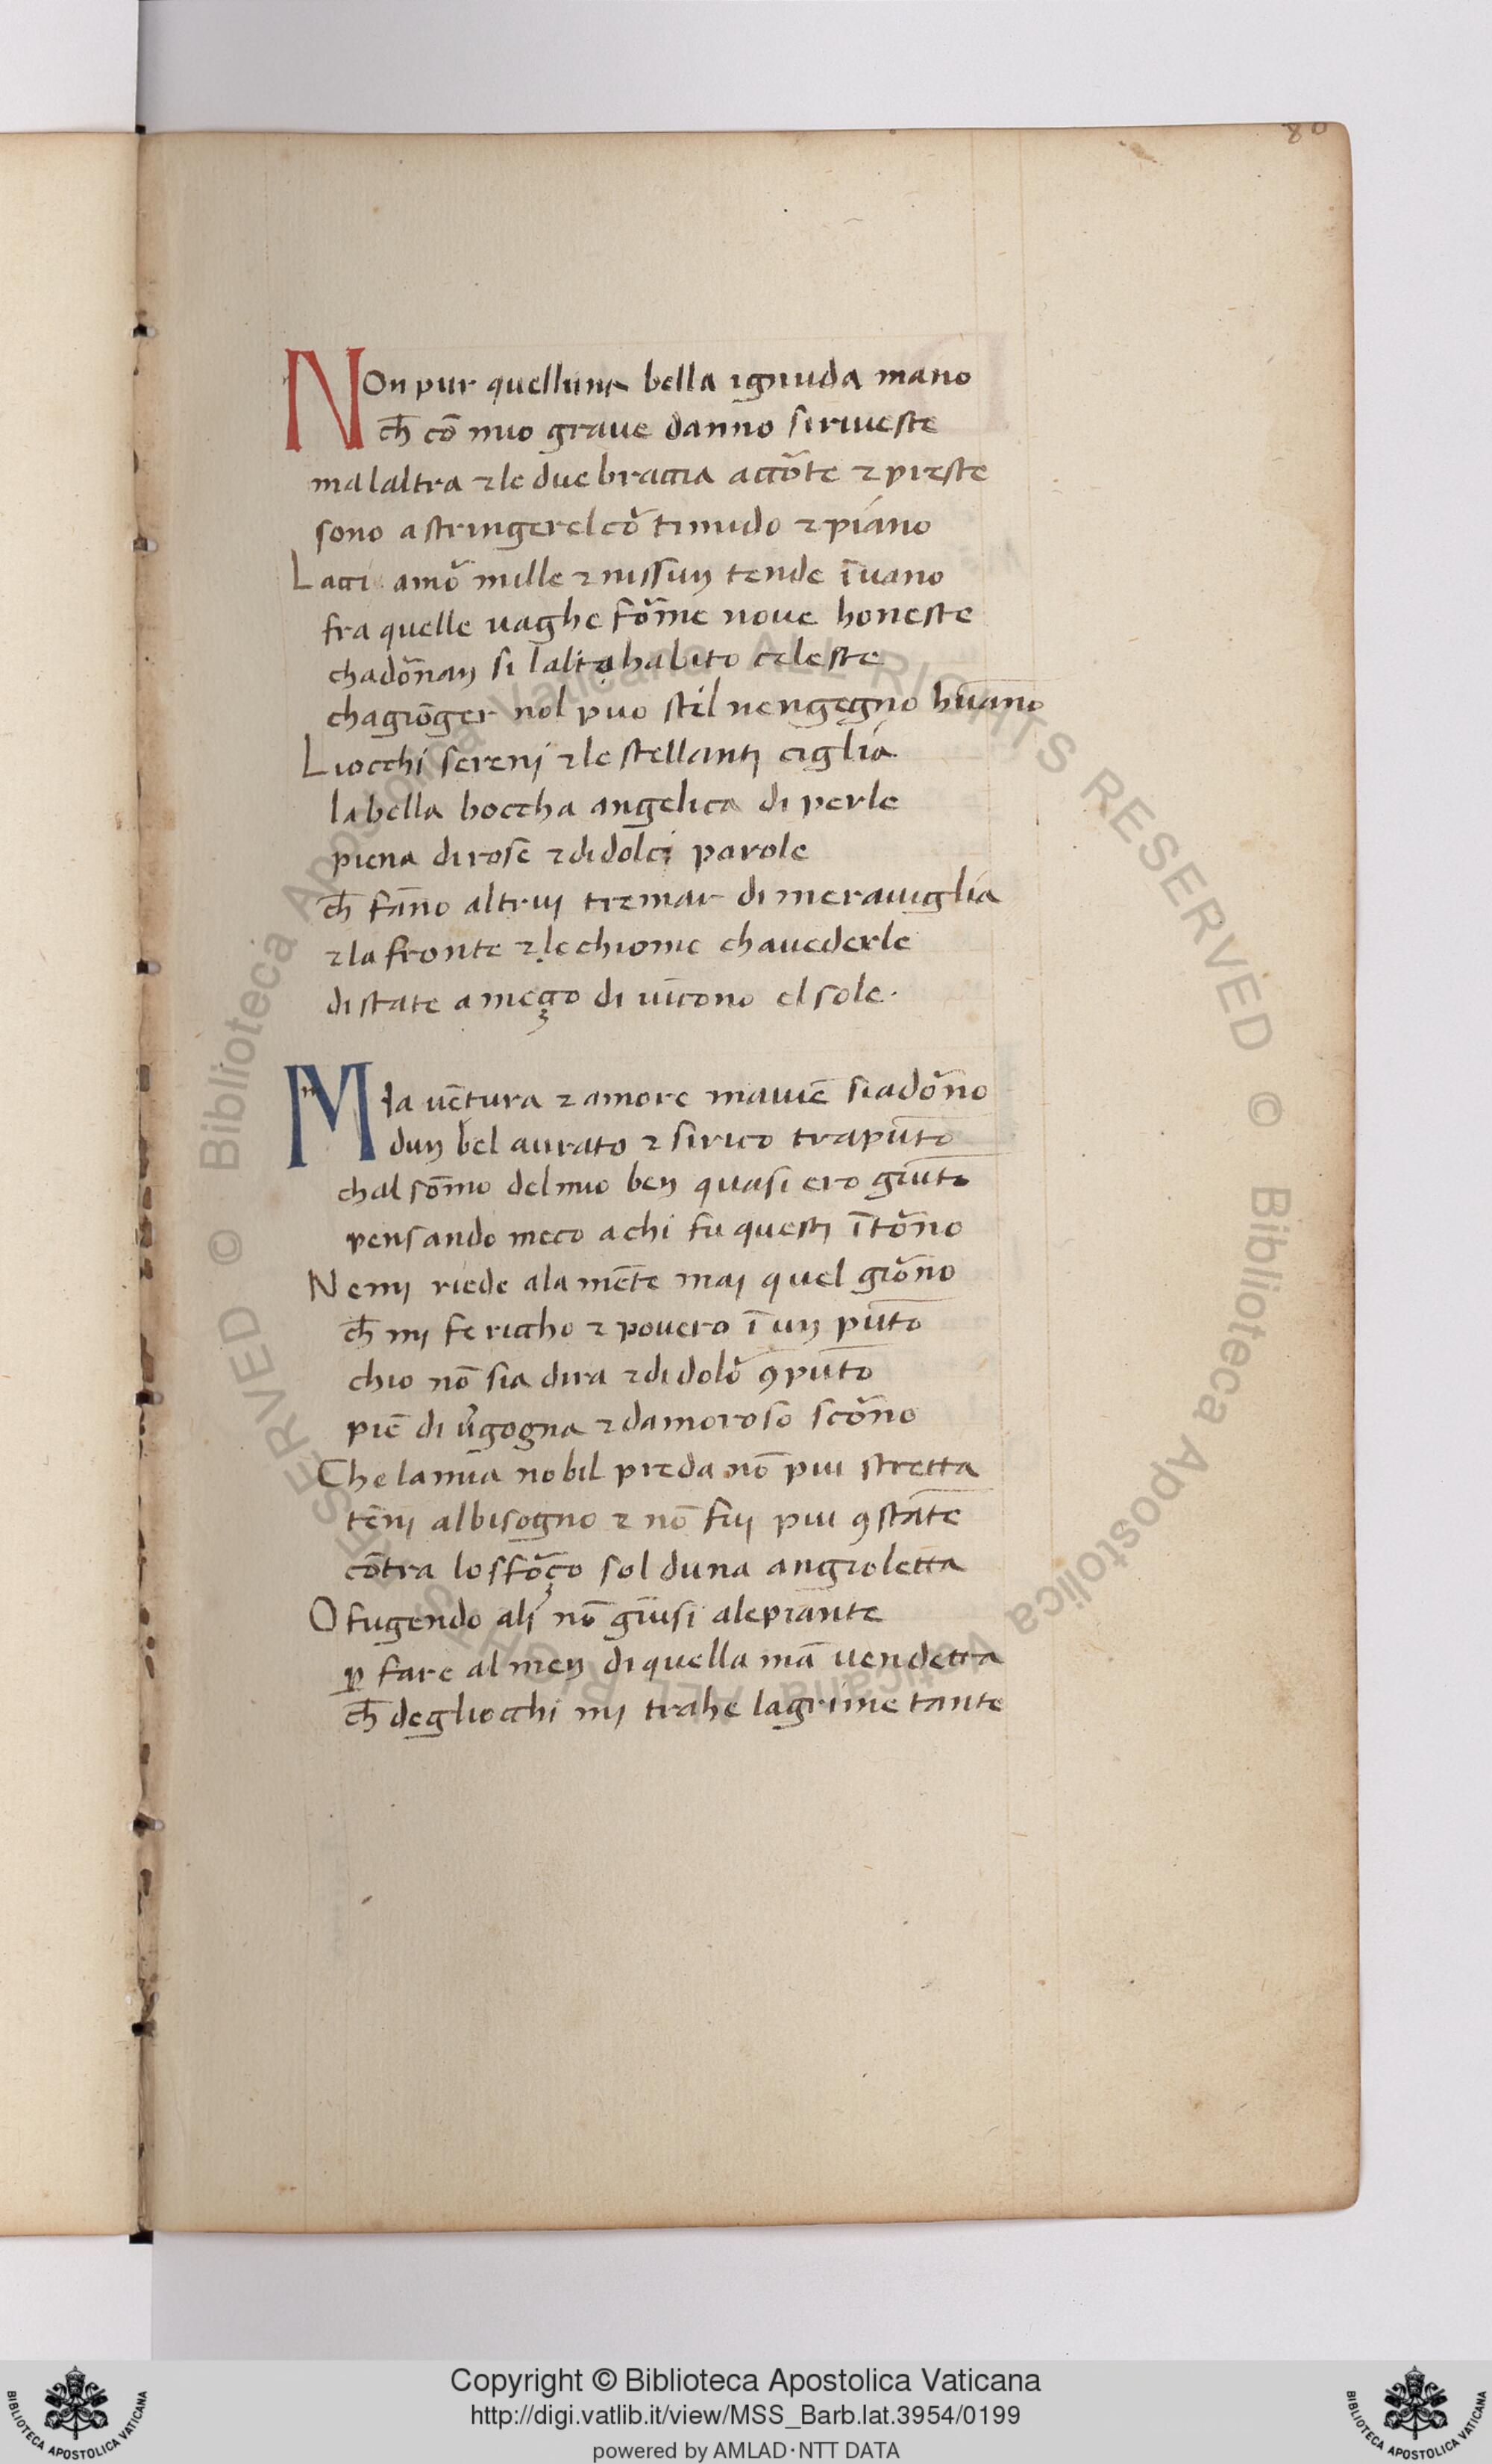 80
NOn pur quelluna bella ignuda mano
ch̄ cō mio graue danno siriueste
malaltra ⁊ le due braccia accōte ⁊ preste
sono astringerelcō timido ⁊ piano
Lacci amō mille ⁊ nissun tende īuano
fra quelle uaghe fōme noue honeste
chadōnan si laltohabito celeste
chagiōger nol puo stil nengegno hūano
Liocchi sereni ⁊ le stellanti ciglia
la bella boccha angelica di perle
piena dirose ⁊ didolci parole
ch̄ fāno altrui tremar di merauiglia
⁊ la fronte ⁊ lechiome chauederle
distate ameço di uīcono elsole.
MIa uētura ⁊ amore mauiē siadōno
dun bel aurato ⁊ sirico trapūto
chal sōmo delmio ben quasi ero giūto
pensando meco achi fu questi ītōno
Nemi riede ala mēte mai quel giōno
ch̄ mi fe riccho ⁊ pouero ī un pūto
chio nō sia dira ⁊ didolō ꝯpūto
piē di ūgogna ⁊ damoroso scōno
Chelamia nobil preda nō piu stretta
tēni albisogno ⁊ nō fui piu ꝯstāte
cōtra losfōço sol duna angioletta
Ofugendo ali nō giūsi alepiante
ꝑ fare almen diquella mā uendetta
ch̄ degliocchi mi trahe lagrime tante
© Biblioteca Apostolica Vaticana ALL RIGHTS RESERVED © Biblioteca Apostolica Vaticana ALL RIGHTS RESERVED
BIBLIOTECA APOSTOLICA VATICANA
Copyright © Biblioteca Apostolica Vaticana
http://digi.vatlib.it/view/MSS_Barb.lat.3954/0199
powered by AMLAD·NTT DATA
BIBLIOTECA APOSTOLICA VATICANA